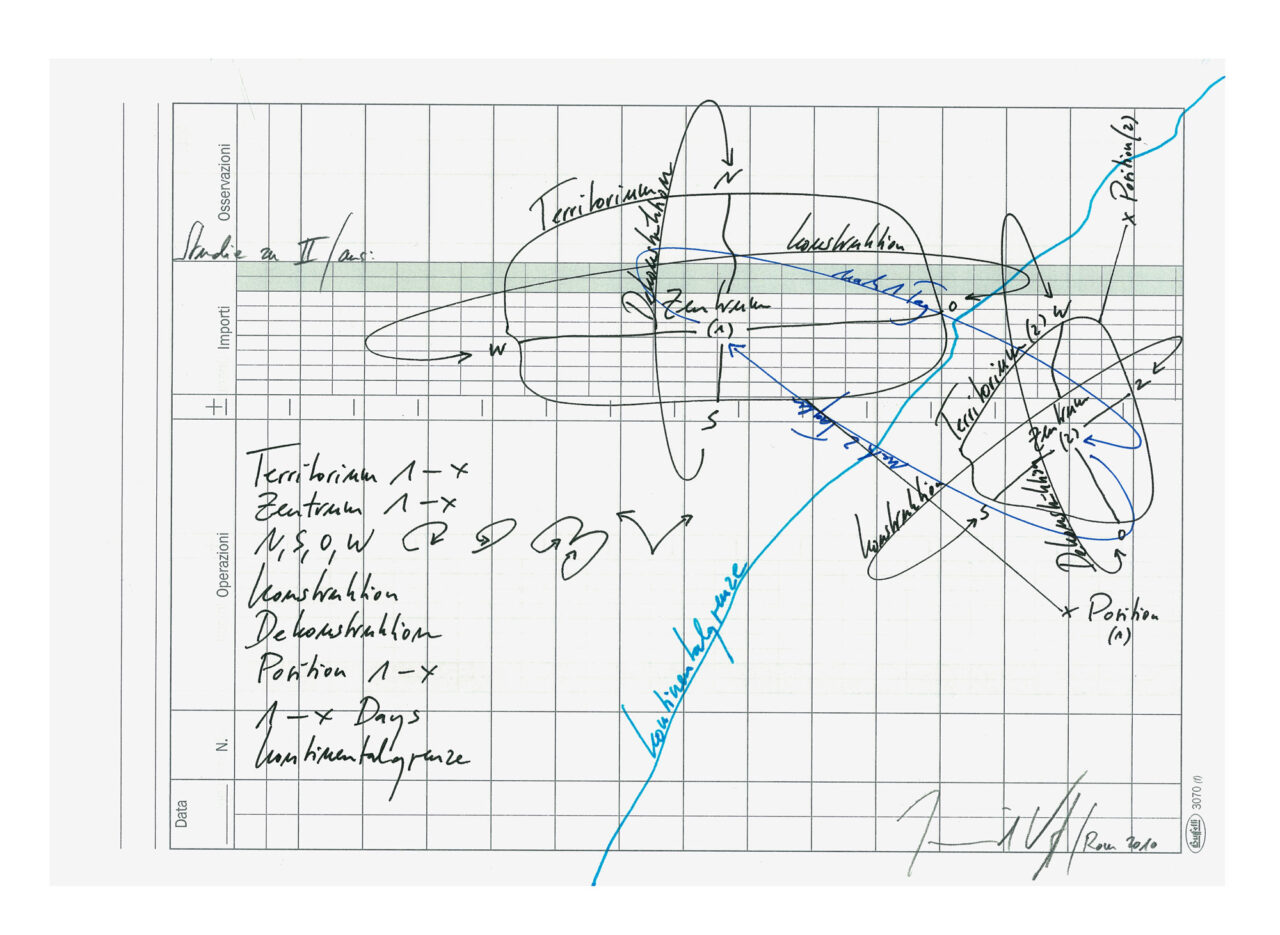 Osservazioni
Importi
Operazioni
N.
Data
Studie zu II/aus:
Territorium
Dekonstruktion
N
Konstruktion
nach 1 Tag
Zentrum
(1)
O
W
S
Position (2)
W
Territorium (2)
Zentrum
(2)
Dekonstruktion
Konstruktion
S
O
Position
(1)
Territorium 1-x
Zentrum 1-x
N, S, O, W
Konstruktion
Dekonstruktion
Position 1-x
1-x Days
Kontinentalgrenze
Kontinentalgrenze
Rom 2010
Buffetti
3070 (f)